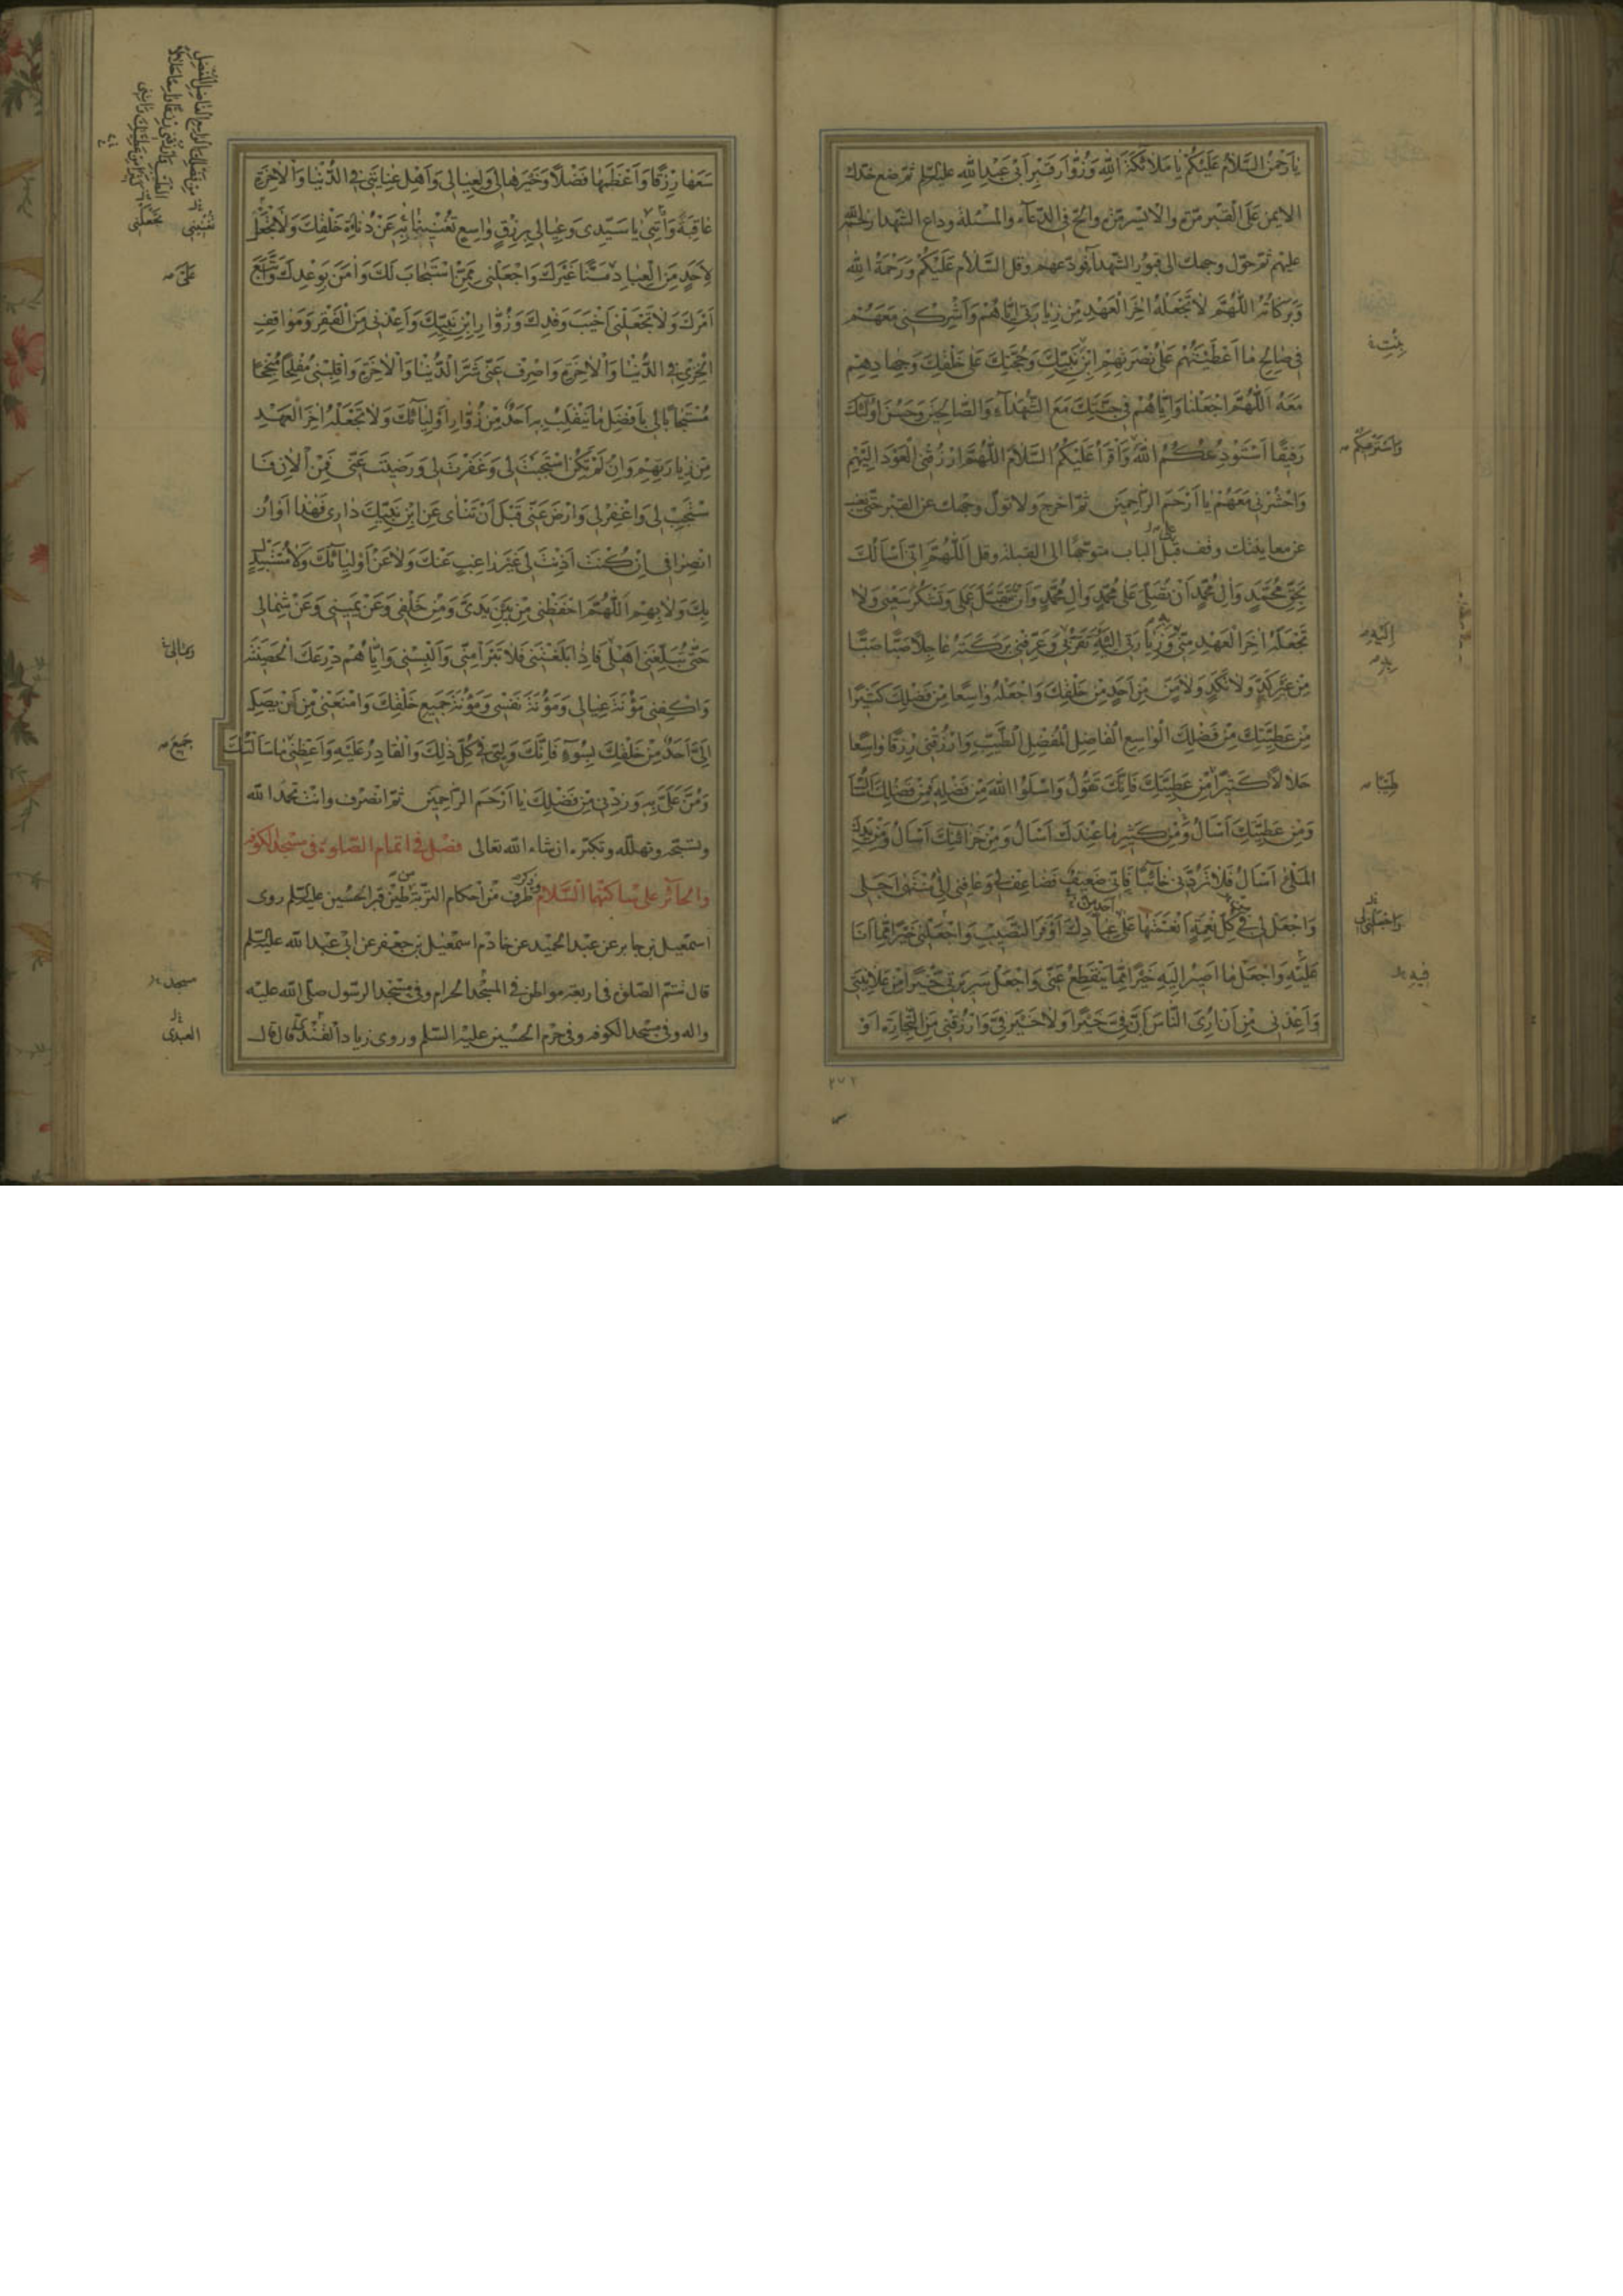 يا رحمن السَّلامُ عَلَيْكُمْ يا مَلائِكَةَ اللهِ وَزُوّارَ قَبْرِ اَبى عَبْدِ اللهِ عليه السّلم ثمّ ضع خدّك
الايمن عَلَى الْقَبر مرّة والايسر مرّة والحّ فى الدّعآء والمسئلة وداع الشّهدا رحمة الله
عليهم ثمّ حوّل وجهك الى قبور الشّهدآء فودّعهم وقل السَّلامُ عَلَيْكُمْ وَرَحْمَةُ اللهِ
وَبَرَكاتُهُ اَللّهُمَّ لا تَجْعَلْهُ اخِرَ الْعَهْدِ مِنْ زِيارَتى اِيّاهُمْ وَاَشْرِكْنى مَعَهُمْ
فى صالِحِ ما اَعْطَيْتَهُمْ عَلى نُصْرَتِهِمِ ابْنَ نَبِيِّكَ وَحُجَّتَكَ عَلى خَلْقِكَ وَجِهادِهِمْ
مَعَهُ اَللّهُمَّ اجْعَلْنا وَاِيّاهُمْ فى جَنَّتِكَ مَعَ الشُّهَدآءِ وَالصّالِحينَ وَحَسُنَ اُولئِكَ
رَفيقًا اَسْتَوْدِعُكُمُ اللهَ وَاَقْرَأُ عَلَيْكُمُ السَّلامَ اَللّهُمَّ ارْزُقْنِى الْعَوْدَ اِلَيْهِمْ
وَاحْشُرْنى مَعَهُمْ يا اَرْحَمَ الرّاحِمينَ ثمّ اخرج ولا تولّ وجهك عن القبر حتّى يغيب
عن معاينتك وقف قبل الباب متوجّهًا الى القبلة وقل اَللّهُمَّ اِنّى اَسْاَلُكَ
بِحَقِّ مُحَمَّدٍ وَالِ مُحَمَّدٍ اَنْ تُصَلِّىَ عَلى مُحَمَّدٍ وَالِ مُحَمَّدٍ وَاَنْ تَتَقَبَّلَ عَمَلى وَتَشْكُرَ سَعْيى وَلا
تَجْعَلَهُ اخِرَ الْعَهْدِ مِنّى وَزِيارَتى وَعَرِّفْنى بَرَكَتَهُ عاجِلًا صَبًّا صَبًّا
مِنْ غَيْرِ كَدٍّ وَلا نَكَدٍ وَلا مَنٍّ مِنْ اَحَدٍ مِنْ خَلْقِكَ وَاجْعَلْهُ واسِعًا مِنْ فَضْلِكَ كَثيرًا
مِنْ عَطِيَّتِكَ مِنْ فَضْلِكَ الْواسِعِ الْفاضِلِ الْمُفْضِلِ الطَّيِّبِ وَارْزُقْنى رِزْقًا واسِعًا
حَلالًا كَثيرًا مِنْ عَطِيَّتِكَ فَاِنَّكَ تَقُولُ وَاسْئَلُوا اللهَ مِنْ فَضْلِهِ فَمِنْ فَضْلِكَ اَسْاَلُ
وَمِنْ عَطِيَّتِكَ اَسْاَلُ وَمِنْ كَثيرِ ما عِنْدَكَ اَسْاَلُ وَمِنْ خَزآئِنِكَ اَسْاَلُ وَمِنْ يَدِكَ
الْمَلْأى اَسْاَلُ فَلا تَرُدَّنى خآئِبًا فَاِنّى ضَعيفٌ فَضاعِفْ لى وَعافِنى اِلى مُنْتَهى اَجَلى
وَاجْعَلْ لى فى كُلِّ نِعْمَةٍ اَنْعَمْتَها عَلى عِبادِكَ اَوْفَرَ النَّصيبِ وَاجْعَلْنى خَيْرًا مِمّا اَنَا
عَلَيْهِ وَاجْعَلْ ما اَصيرُ اِلَيْهِ خَيْرًا مِمّا يَنْقَطِعُ عَنّى وَاجْعَلْ سَريرَتى خَيْرًا مِنْ عَلانِيَتى
وَاَعِذْنى مِنْ اَنْ اُرِىَ النّاسَ اَنَّ فِىَّ خَيْرًا وَلا خَيْرَ فِىَّ وَارْزُقْنى مِنَ التِّجارَةِ اَوْ
٢٧٢
سَعَها رِزْقًا وَاَعْظَمَها فَضْلًا وَخَيْرَها لى وَلِعِيالى وَاَهْلِ عِنايَتى فِى الدُّنْيا وَالْاخِرَةِ
عاقِبَةً وَاْتِنى يا سَيِّدى وَعِيالى بِرِزْقٍ واسِعٍ تُغْنينا بِهِ عَنْ دُناةِ خَلْقِكَ وَلا تَجْعَلْ
لِاَحَدٍ مِنَ الْعِبادِ مَنًّا غَيْرَكَ وَاجْعَلْنى مِمَّنِ اسْتَجابَ لَكَ وَامَنَ بِوَعْدِكَ وَاتَّبَعَ
اَمْرَكَ وَلا تَجْعَلْنى اَخْيَبَ وَفْدِكَ وَزُوّارِ ابْنِ نَبِيِّكَ وَاَعِذْنى مِنَ الْفَقْرِ وَمَواقِفِ
الْخِزْىِ فِى الدُّنْيا وَالْاخِرَةِ وَاصْرِفْ عَنّى شَرَّ الدُّنْيا وَالْاخِرَةِ وَاقْلِبْنى مُفْلِحًا مُنْجِحًا
مُسْتَجابًا لى بِاَفْضَلِ ما يَنْقَلِبُ بِهِ اَحَدٌ مِنْ زُوّارِ اَوْلِيآئِكَ وَلا تَجْعَلْهُ اخِرَ الْعَهْدِ
مِنْ زِيارَتِهِمْ وَاِنْ لَمْ تَكُنِ اسْتَجَبْتَ لى وَغَفَرْتَ لى وَرَضيتَ عَنّى فَمِنَ الْانِ فَا
سْتَجِبْ لى وَاغْفِرْ لى وَارْضَ عَنّى قَبْلَ اَنْ تَنْاى عَنِ ابْنِ نَبِيِّكَ دارى فَهذا اَوانُ
انْصِرافى اِنْ كُنْتَ اَذِنْتَ لى غَيْرَ راغِبٍ عَنْكَ وَلا عَنْ اَوْلِيآئِكَ وَلا مُسْتَبْدِلٍ
بِكَ وَلا بِهِمْ اَللّهُمَّ احْفَظْنى مِنْ بَيْنِ يَدَىَّ وَمِنْ خَلْفى وَعَنْ يَمينى وَعَنْ شِمالى
حَتّى تُبَلِّغَنى اَهْلى فَاِذا بَلَّغْتَنى فَلا تَبَرَّاْ مِنّى وَاَلْبِسْنى وَاِيّاهُمْ دِرْعَكَ الْحَصينَةَ
وَاكْفِنى مَؤُنَةَ عِيالى وَمَؤُنَةَ نَفْسى وَمَؤُنَةَ جَميعِ خَلْقِكَ وَامْنَعْنى مِنْ اَنْ يَصِلَ
اِلَىَّ اَحَدٌ مِنْ خَلْقِكَ بِسُوءٍ فَاِنَّكَ وَلِيّى فى كُلِّ ذلِكَ وَالْقادِرُ عَلَيْهِ وَاَعْطِنى ما سَاَلْتُكَ
وَمُنَّ عَلَىَّ بِهِ وَزِدْنى مِنْ فَضْلِكَ يا اَرْحَمَ الرّاحِمينَ ثمّ انصرف وانت تحمد الله
وتسبّحه وتهلّله وتكبّره ان شاء الله تعالى فصْل فى اتمام الصّلوة فى مسجد الكوفه
والحآئر على ساكنهما السّلام وذكر طرف من احكام التّربة طين قبر الحسين عليه السّلم روى
اسمعيل بن جابر عن عبد الحميد عن خادم اسمعيل بن جعفر عن ابى عبد الله عليه السّلم
قال تتمّ الصّلوة فى اربعة مواطن فى المسجد الحرام وفى مسجد الرّسول صلّى الله عليه
واله وفى مسجد الكوفه وفى حرم الحسين عليه السّلم وروى زياد القندى قال قال
علىّ
وعيالى
جميع
مسجد
العبدى
اليه
طيّبا
واجعلنى
فيه